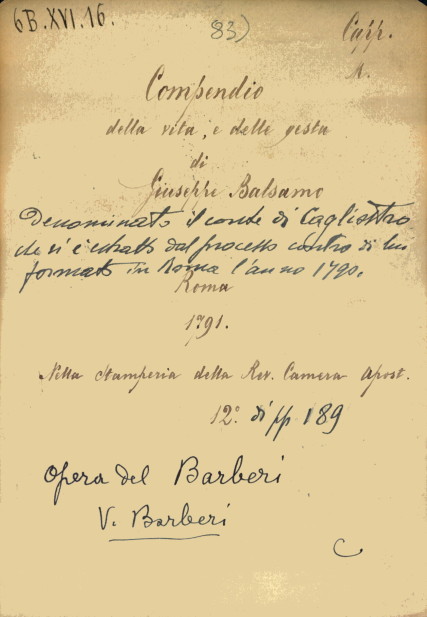 6B.XVI.16.
83)
Capp.
A.
Compendio
della vita, e delle gesta
di
Giuseppe Balsamo
Denominato il conte di Cagliostro
che si è estratto dal processo contro di lui
formato in Roma l'anno 1790.
Roma
1791.
Nella Stamperia della Rev. Camera Apost.
12.° di pp 189
Opera del Barberi
V. Barberi
C